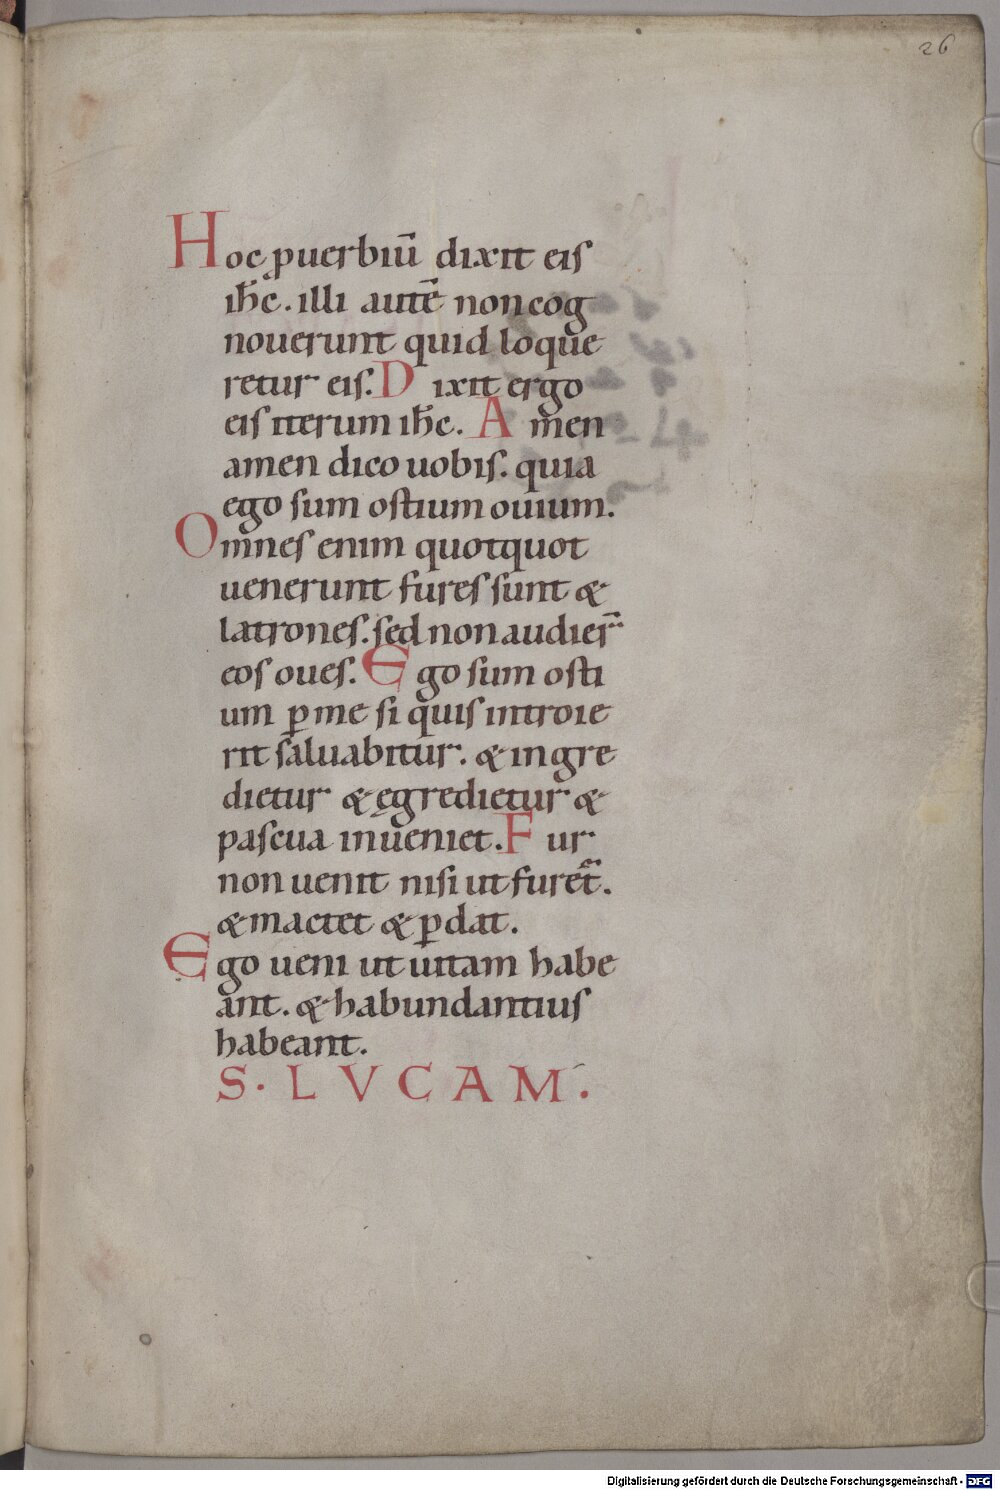 26
Hoc ꝓuerbiū dixit eis
ih̅c. illi autē non cog
nouerunt quid loque
retur eis. Dixit ergo
eis iterum ih̅c. Amen
amen dico uobis. quia
ego sum ostium ouium.
Omnes enim quotquot
uenerunt fures sunt &
latrones. sed non audier̅
eos oues. Ego sum osti
um ꝑ me si quis introie
rit saluabitur. & ingre
dietur & ęgredietur &
pascua inueniet. Fur
non uenit nisi ut furet᷑.
& mactet & ꝑdat.
Ego ueni ut uitam habe
ant. & habundantius
habeant.
S. LVCAM.
Digitalisierung gefördert durch die Deutsche Forschungsgemeinschaft - DFG